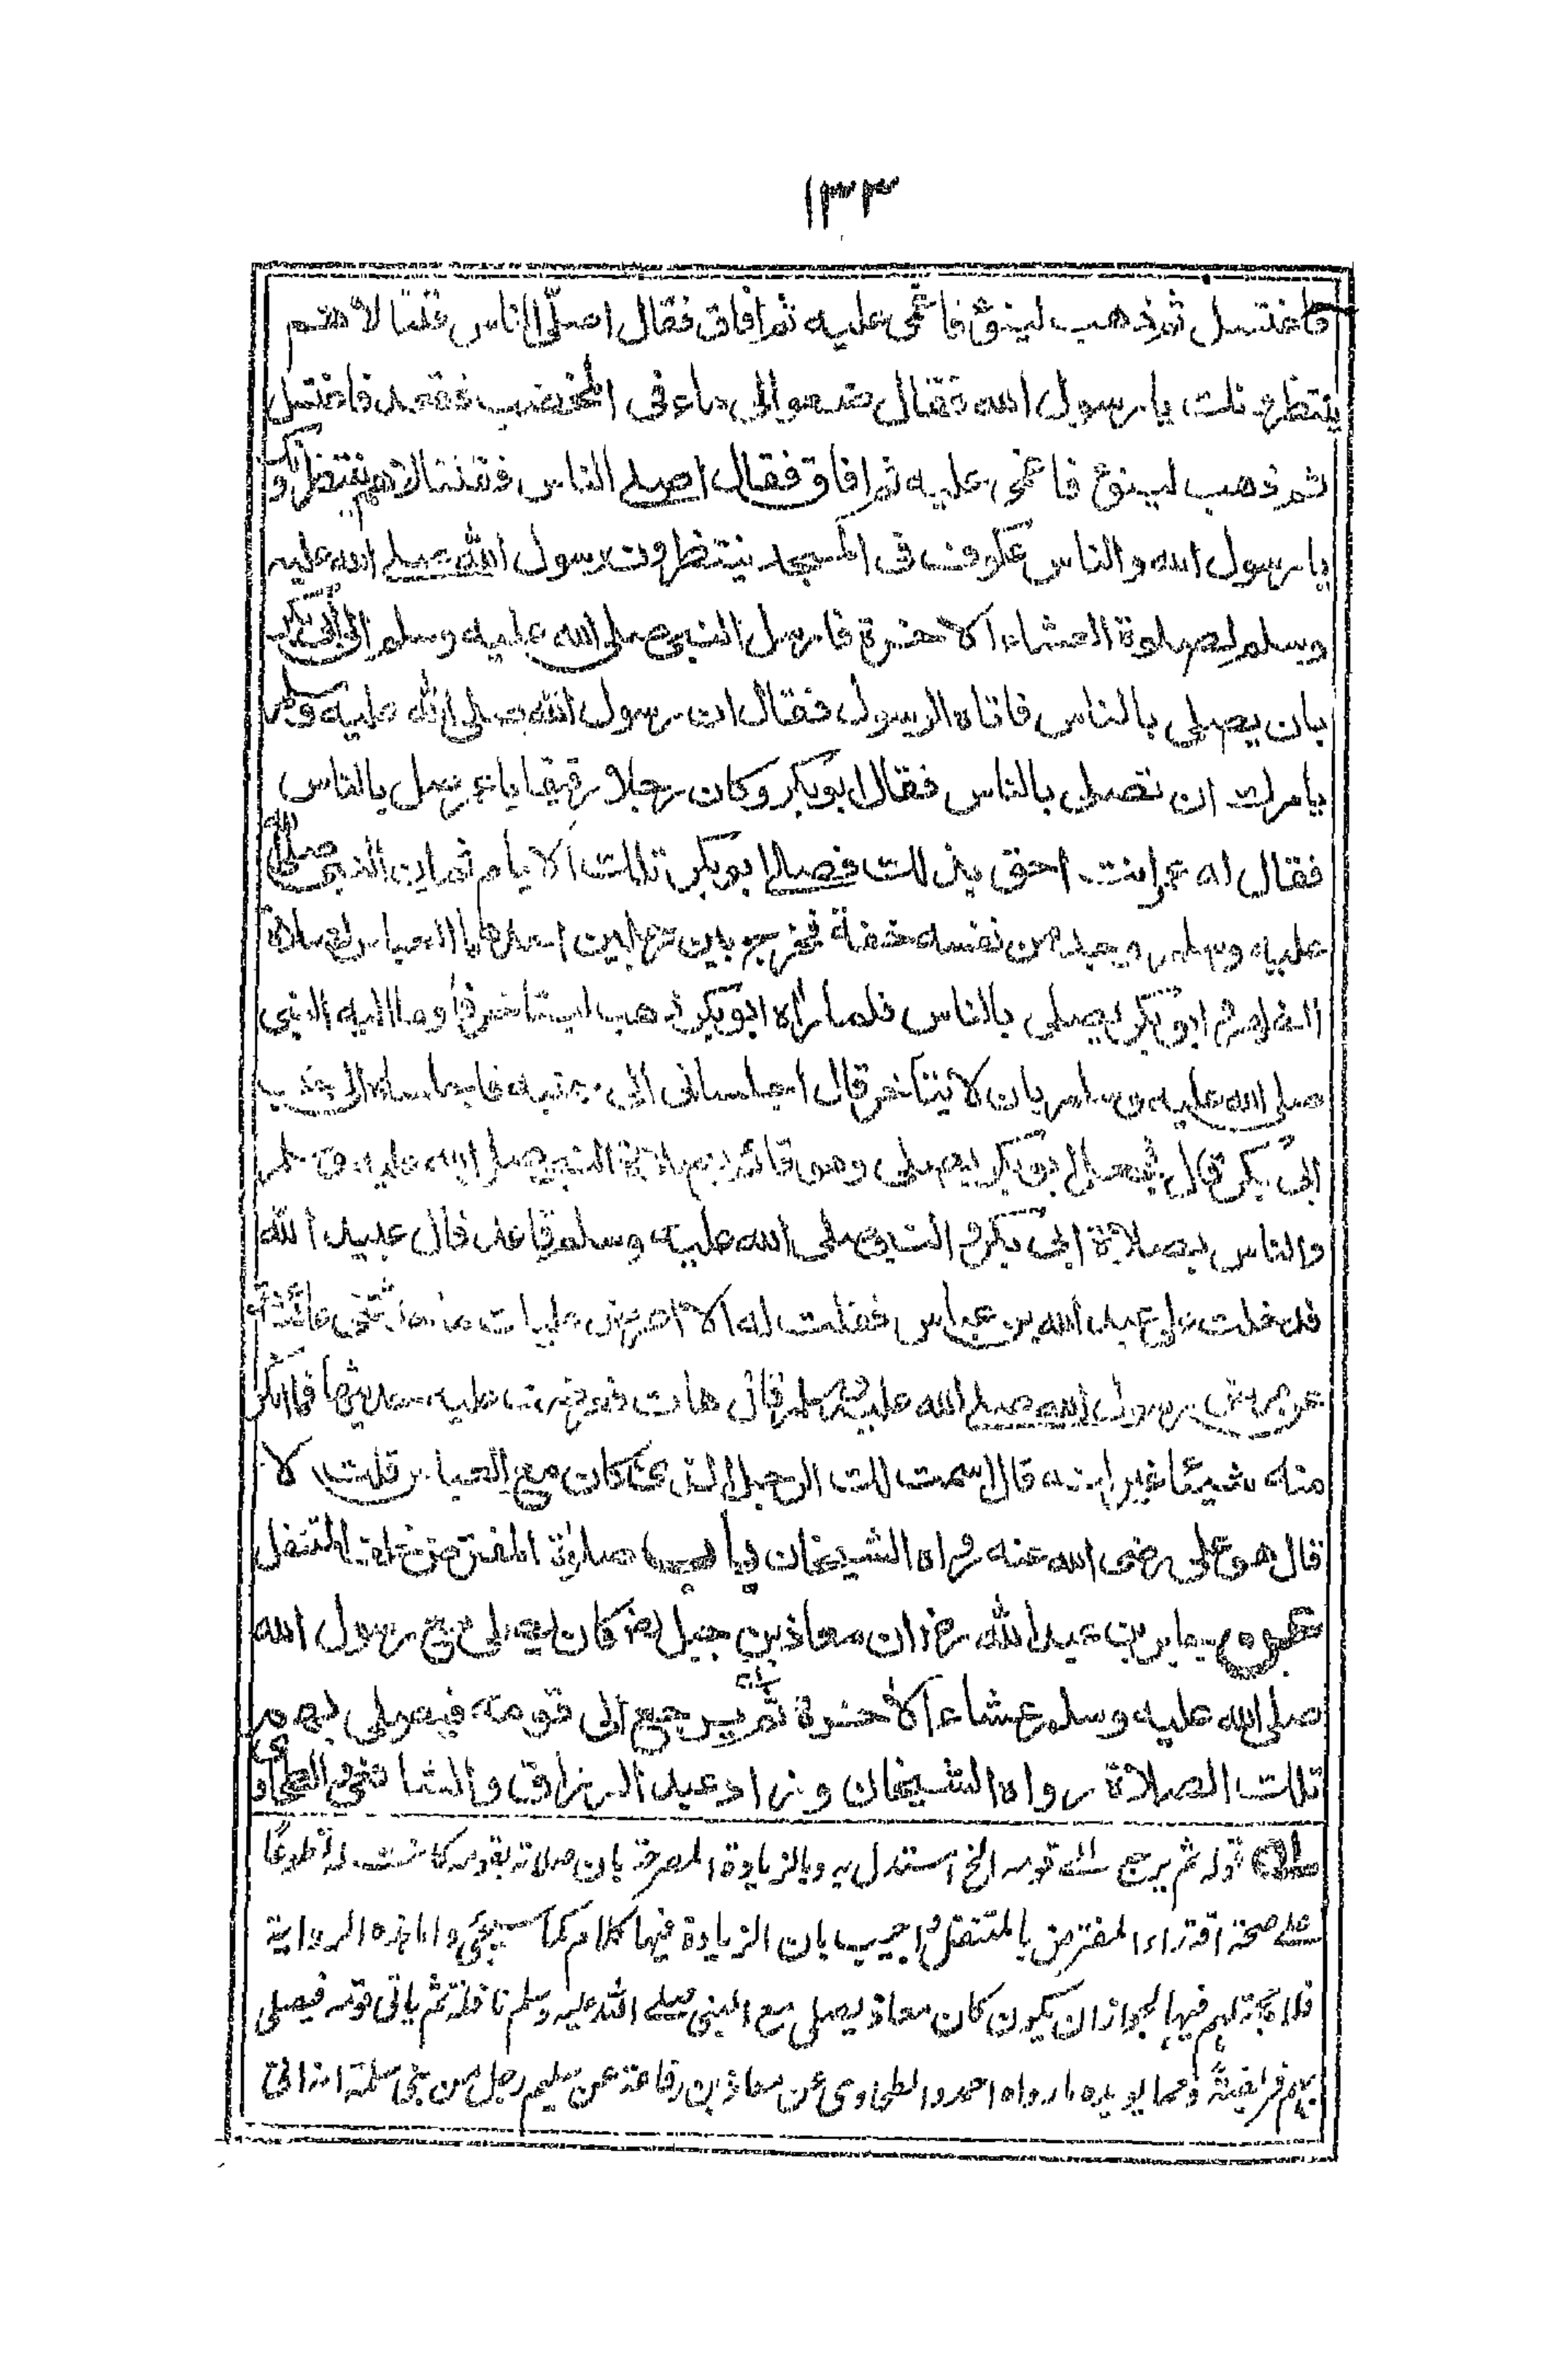 ١٣٣
فاغتسل ثم ذهب لينوء فاغمى عليه ثم افاق فقال اصلى الناس قلنا لا هم
ينتظرونك يا رسول الله فقال ضعوا لى ماء فى المخضب فقعد فاغتسل
ثم ذهب لينوء فاغمى عليه ثم افاق فقال اصلى الناس فقلنا لا هم ينتظرونك
يا رسول الله والناس عكوف فى المسجد ينتظرون رسول الله صلى الله عليه
وسلم لصلوة العشاء الاخرة فارسل النبى صلى الله عليه وسلم الى ابى بكر
بان يصلى بالناس فاتاه الرسول فقال ان رسول الله صلى الله عليه وسلم
يامرك ان تصلى بالناس فقال ابو بكر وكان رجلا رقيقا يا عمر صل بالناس
فقال له عمر انت احق بذلك فصلى ابو بكر تلك الايام ثم ان النبى صلى الله
عليه وسلم وجد من نفسه خفة فخرج بين رجلين احدهما العباس لصلاة
الظهر و ابو بكر يصلى بالناس فلما راه ابو بكر ذهب ليتاخر فاوما اليه النبى
صلى الله عليه وسلم بان لا يتاخر قال اجلسانى الى جنبه فاجلساه الى جنب
ابى بكر قال فجعل ابو بكر يصلى وهو قائم بصلاة النبى صلى الله عليه وسلم
والناس بصلاة ابى بكر و النبى صلى الله عليه وسلم قاعد قال عبيد الله
فدخلت على عبد الله بن عباس فقلت له الا اعرض عليك ما حدثتنى عائشة
عن مرض رسول الله صلى الله عليه وسلم قال هات فعرضت عليه حديثها فما انكر
منه شيئا غير انه قال اسمت لك الرجل الذى كان مع العباس قلت لا
قال هو على رضى الله عنه رواه الشيخان باب صلوة المفترض خلف المتنفل
عن جابر بن عبد الله رض ان معاذ بن جبل رض كان يصلى مع رسول الله
صلى الله عليه وسلم عشاء الاخرة ثم يرجع الى قومه فيصلى بهم
تلك الصلاة رواه الشيخان وزاد عبد الرزاق والشافعى والطحاوى
قوله ثم يرجع الى قومه الخ استدل به وبالزيادة المصرحة بان صلاته بقومه كانت له تطوعا
على صحة اقتداء المفترض بالمتنفل واجيب بان الزيادة فيها كلام كما سيجئ واما هذه الرواية
فلا حجة لهم فيها لجواز ان يكون كان معاذ يصلى مع النبى صلى الله عليه وسلم نافلة ثم ياتى قومه فيصلى
بهم فريضة ومما يويده ما رواه احمد والطحاوى عن معاذ بن رفاعة عن سليم رجل من بنى سلمة انه اتى